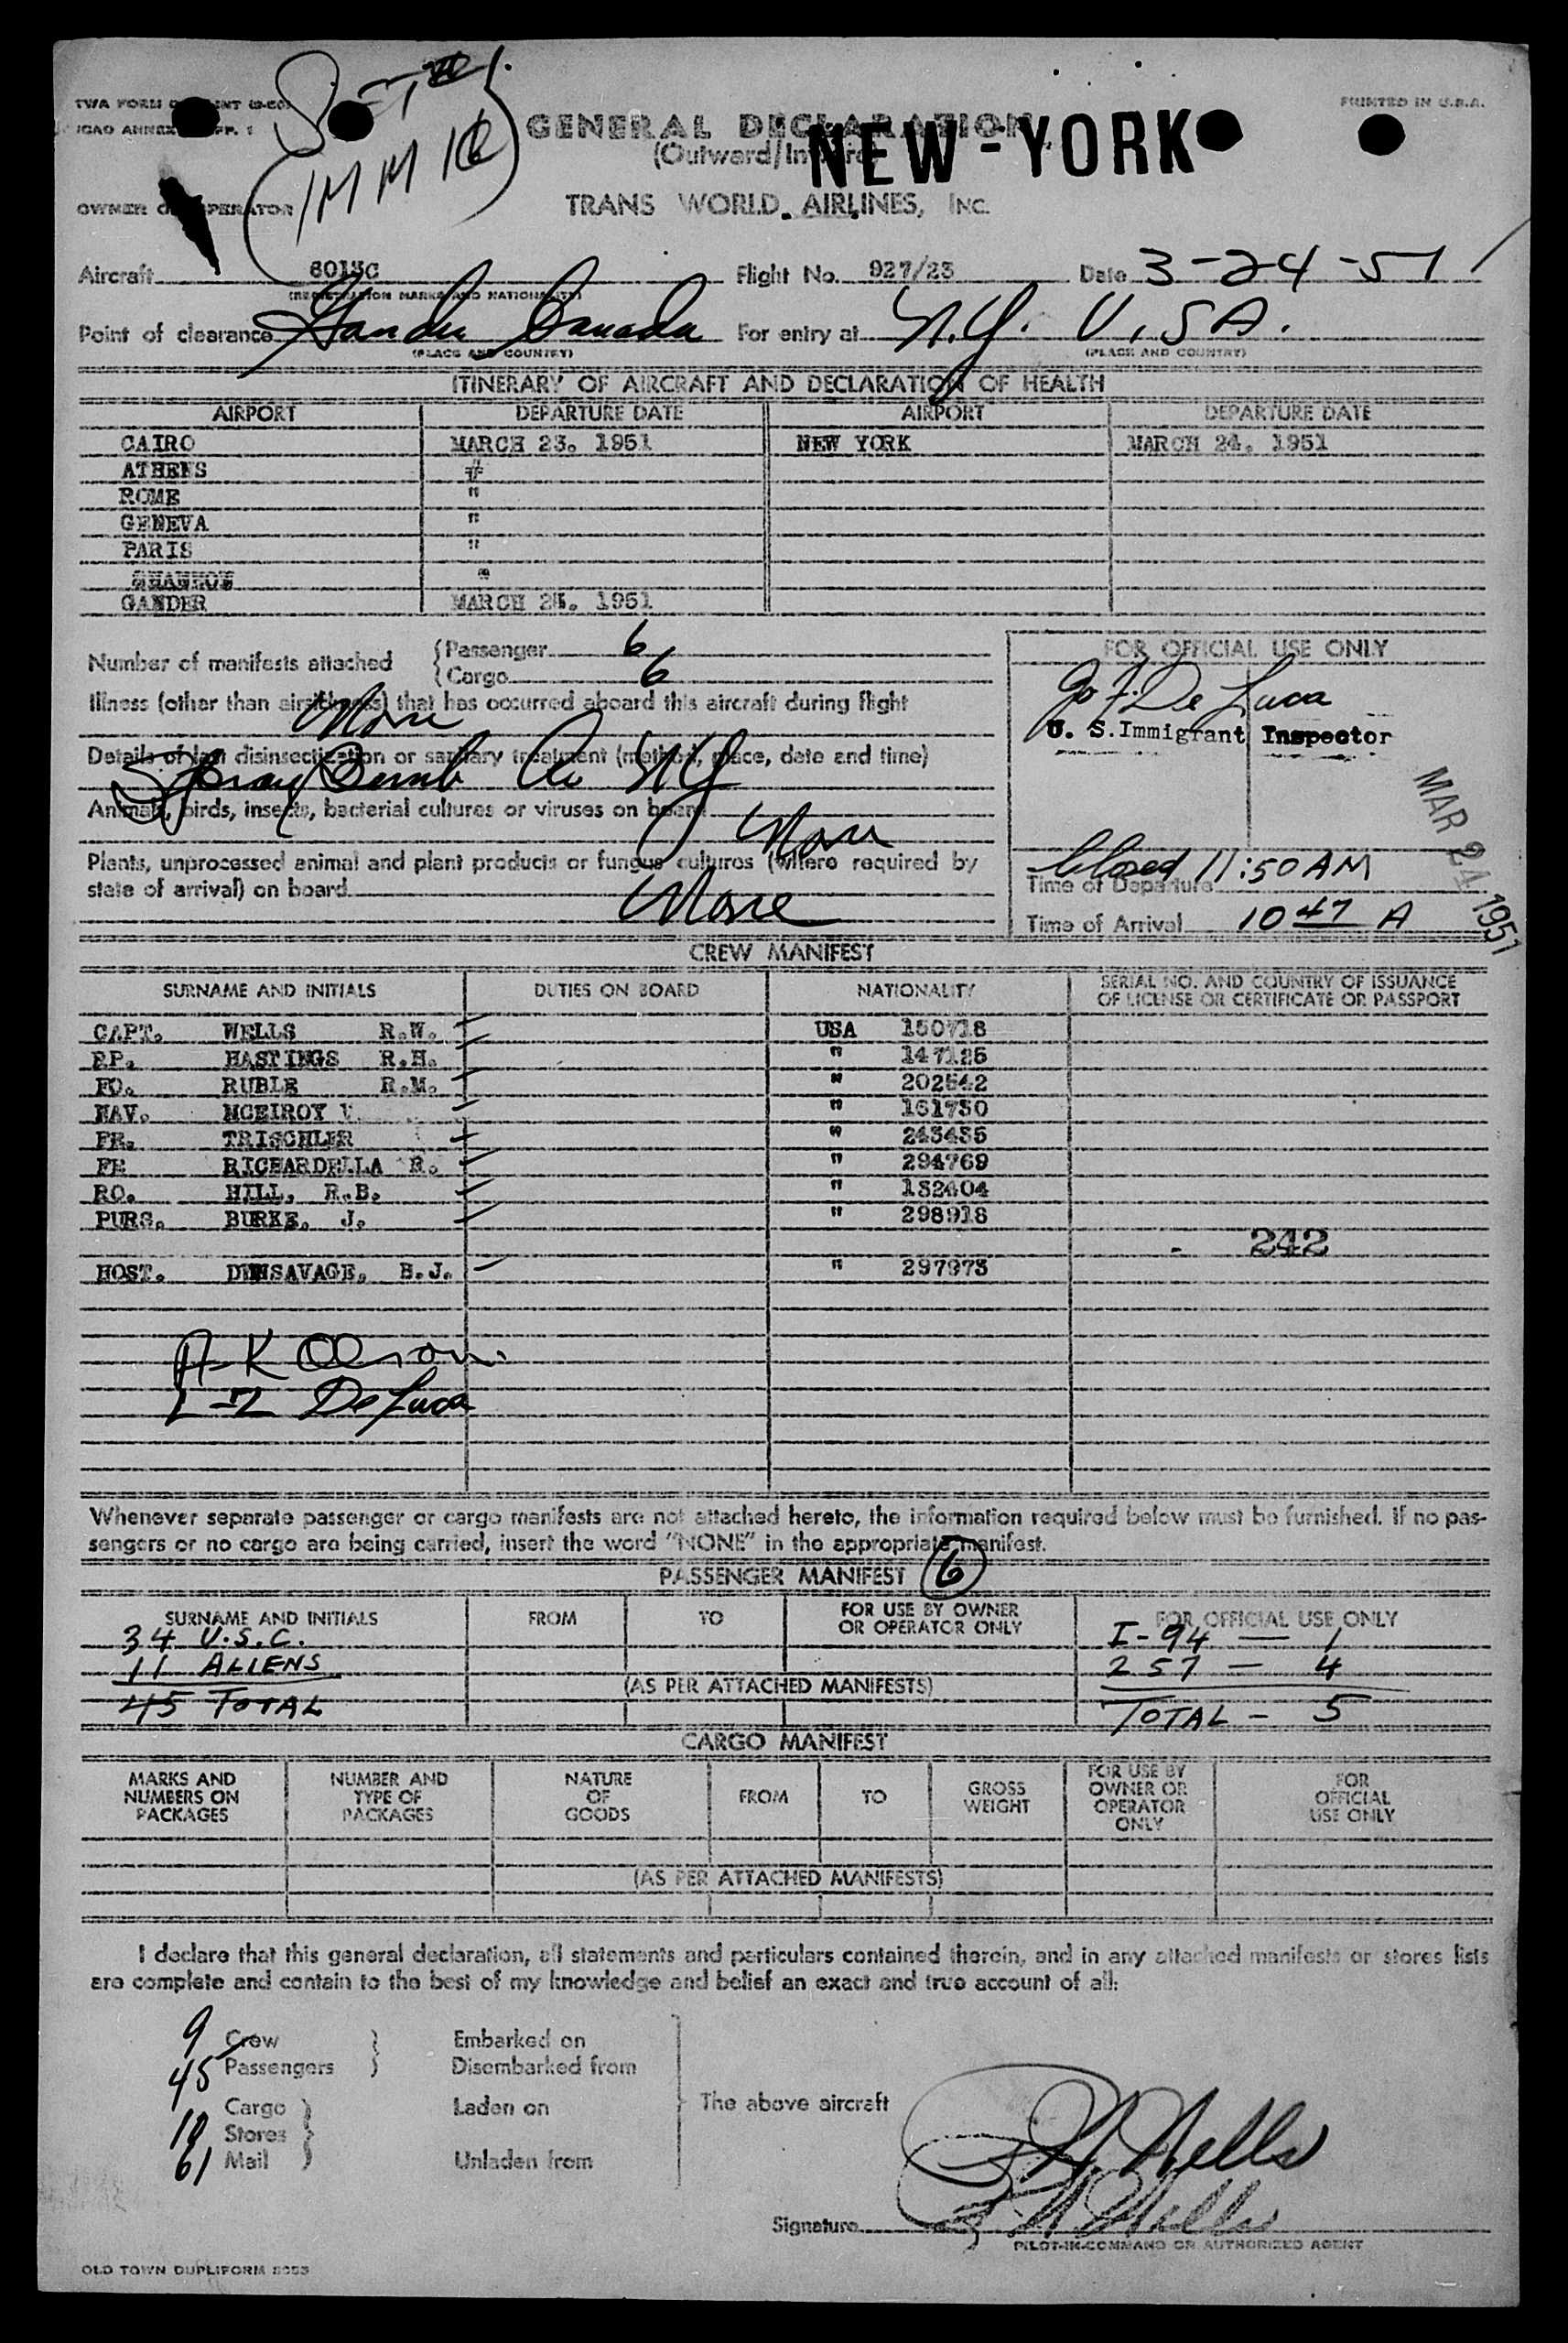 PRINTED IN U.S.A.
GENERAL DECLARATION
(Outward/Inward)
NEW-YORK
OWNER OR OPERATOR
TRANS WORLD AIRLINES, INC.
Aircraft 6013C Flight No. 927/23 Date 3-24-51
(REGISTRATION MARKS AND NATIONALITY)
Point of clearance Gander Canada For entry at N.Y. U.S.A.
(PLACE AND COUNTRY) (PLACE AND COUNTRY)
ITINERARY OF AIRCRAFT AND DECLARATION OF HEALTH
AIRPORT DEPARTURE DATE AIRPORT DEPARTURE DATE
CAIRO MARCH 23. 1951 NEW YORK MARCH 24. 1951
ATHENS "
ROME "
GENEVA "
PARIS "
SHANNON "
GANDER MARCH 24. 1951
Number of manifests attached
Passenger 6
Cargo 6
Illness (other than airsickness) that has occurred aboard this aircraft during flight
None
Details of last disinsectization or sanitary treatment (method, place, date and time)
Spray Bomb Ar NY
Animals, birds, insects, bacterial cultures or viruses on board
None
Plants, unprocessed animal and plant products or fungus cultures (where required by
state of arrival) on board
None
FOR OFFICIAL USE ONLY
De Luca
U. S. Immigrant Inspector
MAR 24 1951
Closed 11:50 AM
Time of Departure
Time of Arrival 10 47 A
CREW MANIFEST
SURNAME AND INITIALS DUTIES ON BOARD NATIONALITY SERIAL NO. AND COUNTRY OF ISSUANCE
OF LICENSE OR CERTIFICATE OR PASSPORT
CAPT. WELLS R.W. USA 150718
RP. HASTINGS R.H. " 147125
FO. RUBLE R.M. " 202542
NAV. MCEIROY V. " 161750
FE. TRISCHLER " 243435
FE RICHARDELLA R. " 294769
RO. HILL, R.B. " 132404
PURS. BURKE, J. " 298918
242
HOST. DENSAVAGE, B.J. " 297973
A-K Olson
L-Z De Luca
Whenever separate passenger or cargo manifests are not attached hereto, the information required below must be furnished. If no pas-
sengers or no cargo are being carried, insert the word "NONE" in the appropriate manifest.
PASSENGER MANIFEST 6
SURNAME AND INITIALS FROM TO FOR USE BY OWNER
OR OPERATOR ONLY FOR OFFICIAL USE ONLY
34 U.S.C. I-94 — 1
11 ALIENS 257 — 4
(AS PER ATTACHED MANIFESTS)
45 TOTAL TOTAL - 5
CARGO MANIFEST
MARKS AND
NUMBERS ON
PACKAGES
NUMBER AND
TYPE OF
PACKAGES
NATURE
OF
GOODS
FROM
TO
GROSS
WEIGHT
FOR USE BY
OWNER OR
OPERATOR
ONLY
FOR
OFFICIAL
USE ONLY
(AS PER ATTACHED MANIFESTS)
I declare that this general declaration, all statements and particulars contained therein, and in any attached manifests or stores lists
are complete and contain to the best of my knowledge and belief an exact and true account of all:
9 Crew Embarked on
45 Passengers Disembarked from
Cargo Laden on The above aircraft
Stores
61 Mail Unladen from
R W. Wells
Signature R W. Wells
PILOT-IN-COMMAND OR AUTHORIZED AGENT
OLD TOWN DUPLIFORM